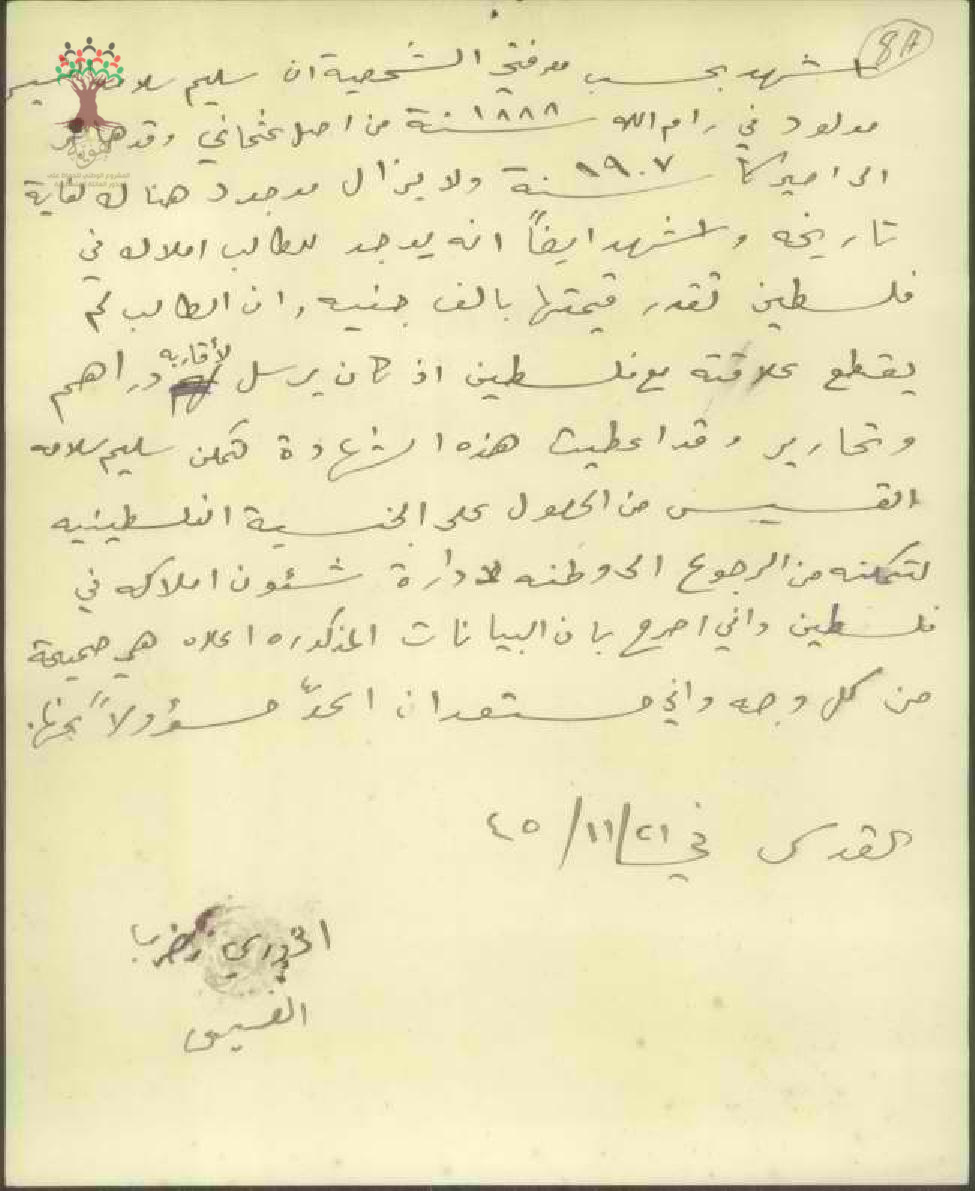 8A
اشهد بحسب معرفتي الشخصية ان سليم سلامه القسيس
مولود في رام الله سنة ١٨٨٨ من اصل عثماني وقد هاجر
الى اميركا سنة ١٩٠٧ ولا يزال موجود هناك لغاية
تاريخه واشهد ايضاً انه يوجد للطالب املاك في
فلسطين تقدر قيمتها بالف جنيه وان الطالب لم
يقطع علاقته مع فلسطين اذ كان يرسل لأقاربه دراهم
وتحارير وقد اعطيت هذه الشهادة لتمكن سليم سلامه
القسيس من الحصول على الجنسية الفلسطينيه
لتمكنه من الرجوع الى وطنه لادارة شئون املاكه في
فلسطين واني اصرح بان البيانات المذكوره اعلاه هي صحيحة
من كل وجه واني مستعد ان اكون مسؤولاً عنها.
القدس في ٢١/١١/٤٥
الخوري
القسيس
هوية